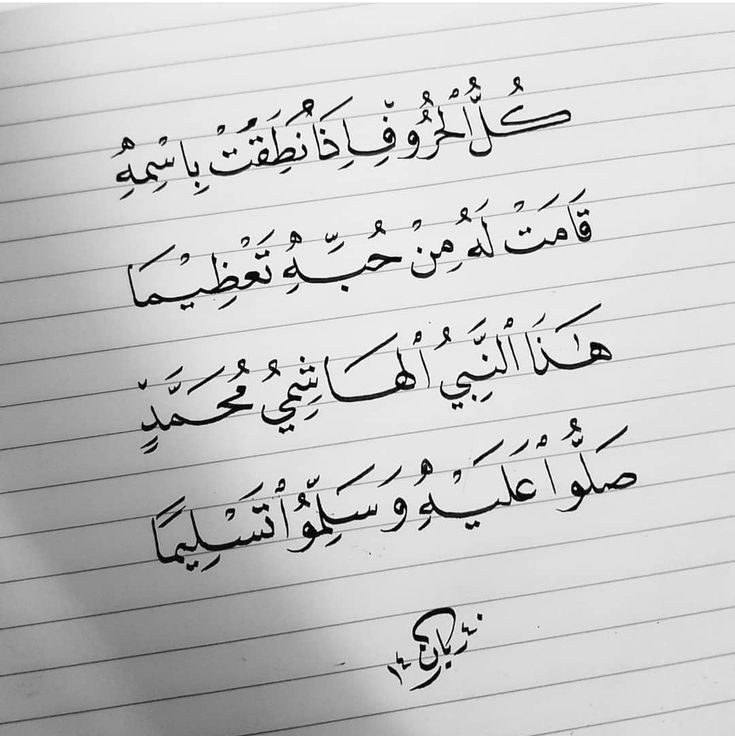 كُلُّ الْحُرُوْفِ اِذَا نُطِقَتْ بِاسْمِهِ
قَامَتْ لَهُ مِنْ حُبِّهِ تَعْظِيْمَا
هٰذَا الْنَّبِيُ الْهَاشِمِيُ مُحَمَّدٍ
صَلُّوْا عَلَيْهِ وَسَلِّمُوْا تَسْلِيمًا